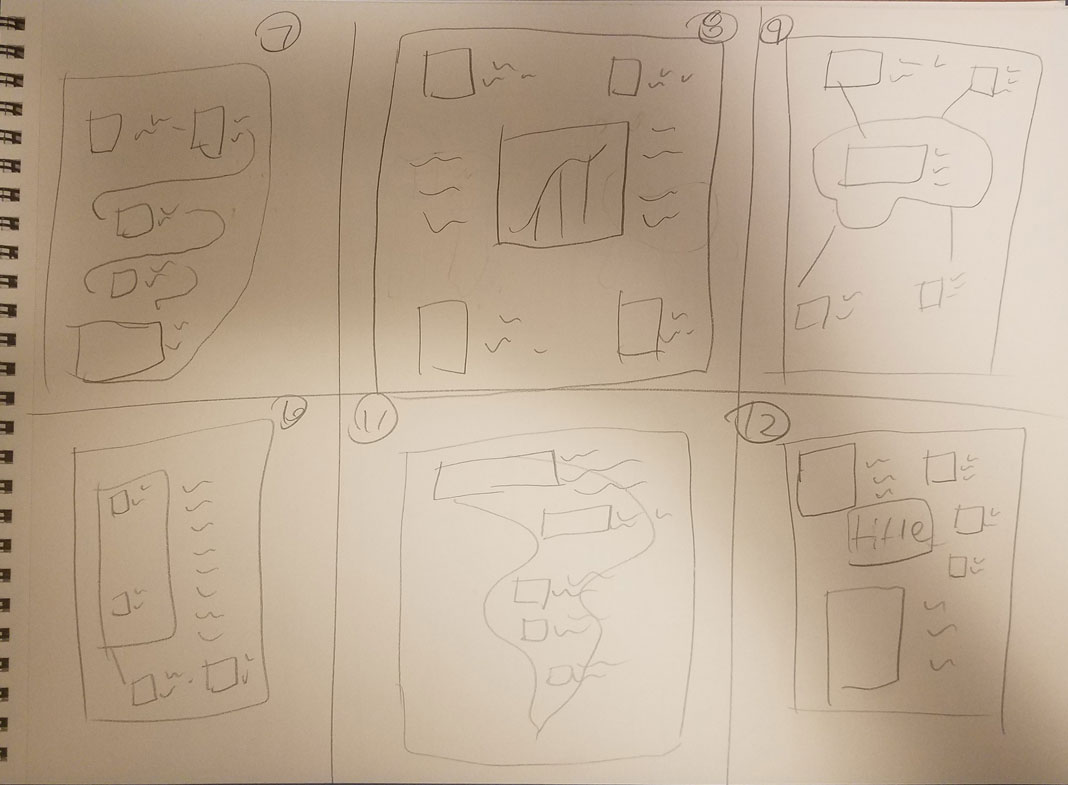 7
8
9
10
11
12
title